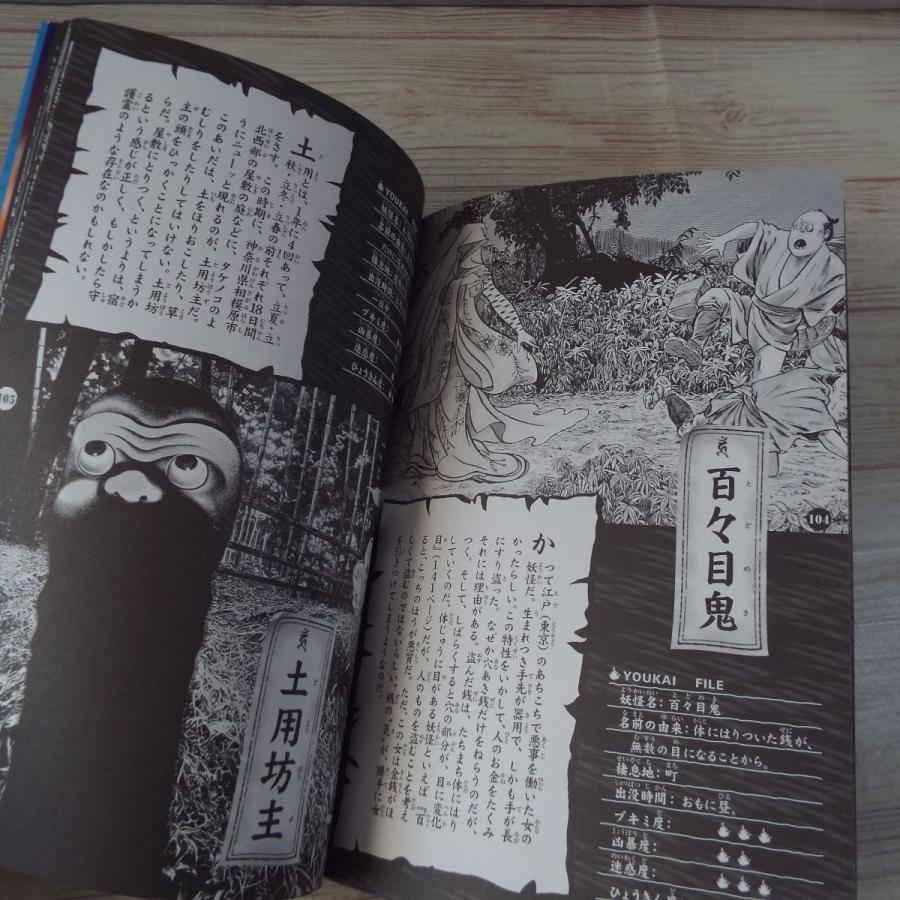 百々目鬼
とどめき
かつて江戸（東京）のあちこちで悪事を働いた女の
妖怪だ。生まれつき手先が器用で、しかも手が長
かったらしい。この特性をいかして、人のお金をたくみ
にすり盗った。なぜか穴あき銭だけをねらうのだが、
それには理由がある。盗んだ銭は、たちまち体にはり
つく。そして、しばらくすると穴の部分が、目に変化
していくのだ。体じゅうに目がある妖怪といえば『百
目』（141ページ）だが、人のものを盗むことを考え
ると、こっちのほうが悪質だ。ただ、この女は金銭がほ
しくて盗むのではないらしい。銭の“気”が、勝手に女
を引きつけてしまうようなのだ。
YOUKAI FILE
妖怪名：百々目鬼
名前の由来：体にはりついた銭が、
無数の目になることから。
棲息地：町
出没時間：おもに昼。
ブキミ度：
凶暴度：
迷惑度：
ひょうきん度：
104
土用坊主
どようぼうず
土用とは、1年に4回あって、立夏・立
秋・立冬・立春の前それぞれ18日間
をさす。この時期に、神奈川県相模原市
北西部の屋敷の庭などに、タケノコのよ
うにニューッと現れるのが、土用坊主だ。
このあいだは、土をほりおこしたり、草
むしりをしたりしてはいけない。土用坊
主の頭をひっかくことになってしまうか
らだ。屋敷にとりつく、というよりは、宿
るという感じが正しく、もしかしたら守
護霊のような存在なのかもしれない。
YOUKAI
妖怪名
名前の由
棲息地
出没時間
ブキミ度：
凶暴度：
迷惑度：
ひょうきん度：
105